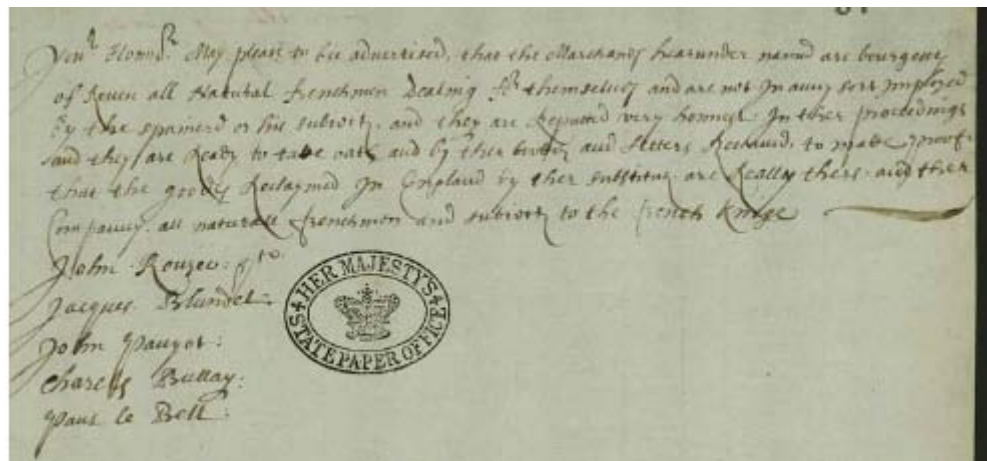 Your Honnr. May please to bee advertised, that the Marchands hearunder named are bourgeois
of Roven all Natural frenchmen Dealing for themselves and are not In anny sort Imployed
by the spanierd or his subiects, and they are Reputed very honnest In ther proceedings
and they are Ready to take oath and by ther bookes and letters Receaved, to make proof
that the goodes Reclaymed In England by ther substitut are Really thers and ther
Companny. all naturall frenchmen and subiects to the french Kinge
John Rouzee:
Jacques Blundel:
John Pauyot:
Charles Bullay:
Paul le Bell:
HER MAJESTY'S
STATE PAPER OFFICE